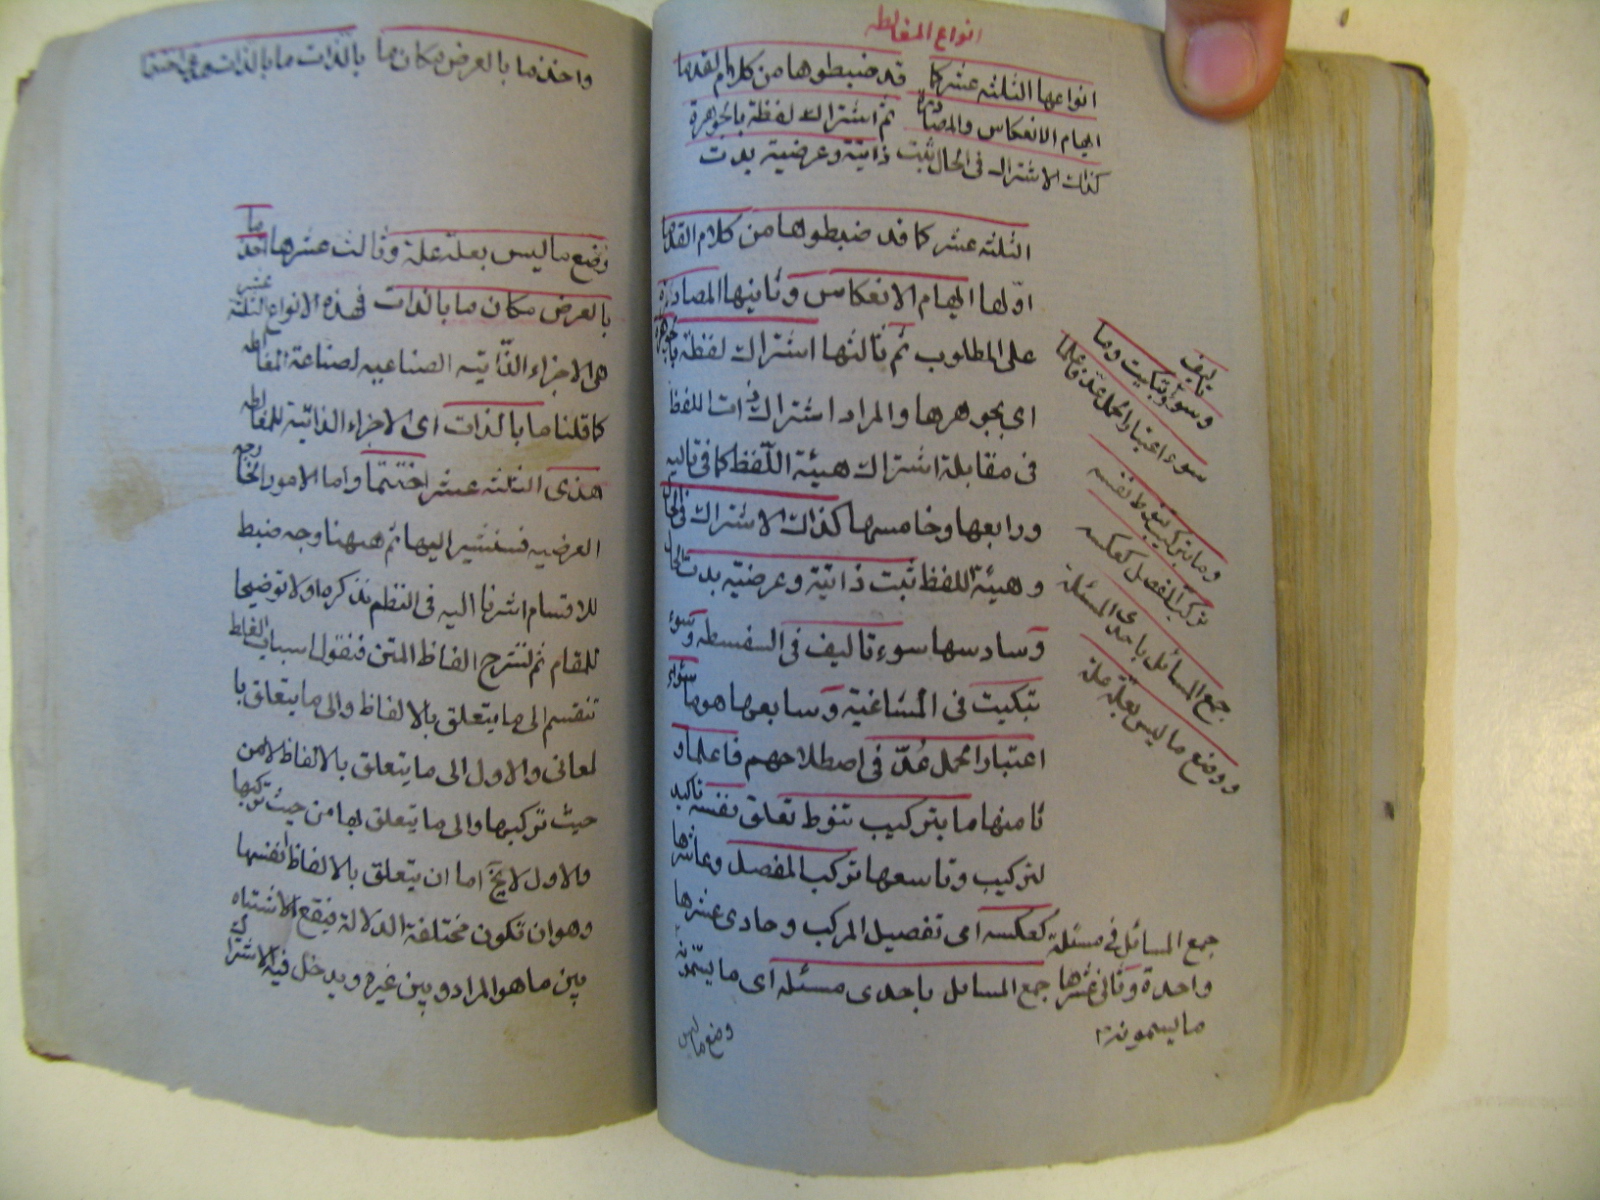 انواع المغالطه
انواعها الثلثه عشر كما قد ضبطوها من كلام القدما
ايهام الانعكاس والمصادره ثم اشتراك لفظة بالجوهرة
كذاك الاشتراك فى الحال ثبت ذاتية وعرضية بدت
الثلثه عشر كما قد ضبطوها من كلام القدما
اولها ايهام الانعكاس وثانيها المصادرة
على المطلوب ثم ثالثها اشتراك لفظة بالجوهرة
اى بجوهرها والمراد اشتراك ذات اللفظ
فى مقابلة اشتراك هيئة اللفظ كما فى تاليه
ورابعها وخامسها كذاك الاشتراك فى الحال
وهيئة اللفظ ثبت ذاتية وعرضية بدت الحال
وسادسها سوء تاليف فى السفسطه وسوء
تبكيت فى المشاغبة وسابعها هو ما سواء
اعتبار الحمل عدّ فى اصطلاحهم فاعلما و
ثامنها ما بتركيب تنوط تعلق نفسه تاكيد
لتركيب وتاسعها تركب المفصل وعاشرها
كعكسه اى تفصيل المركب وحادى عشرها
جمع المسائل فى مسئلة
واحدة وثانى عشرها جمع المسائل باحدى مسئله اى ما يسمونه
ما يسمونه
وضع ما ليس
تاليف
وسوء تبكيت وما
سوء اعتبار الحمل عد فاعلما
وما بتركيب تنوط نفسه
تركب المفصل كعكسه
جمع المسائل باحدى المسئلة
ووضع ما ليس بعلة علة
واخذ ما بالعرض مكان ما بالذات ما بالذات
وضع ما ليس بعلة علة وثالث عشرها اخذ ما
بالعرض مكان ما بالذات فهذه الانواع الثلثة عشر
هى الاجزاء الذاتيه الصناعيه لصناعة المغالطه
كما قلنا ما بالذات اى الاجزاء الذاتية للمغالطه
هذى الثلثه عشر اختتما واما الامور الخارجه
العرضيه فسنشير اليها ثم ههنا وجه ضبط
للاقسام اشرنا اليه فى النظم نذكره اولا توضيحا
للمقام ثم لنشرح الفاظ المتن فنقول اسباب الغلط
تنقسم الى ما يتعلق بالالفاظ والى ما يتعلق با
لمعانى والاول الى ما يتعلق بالالفاظ لا من
حيث تركبها والى ما يتعلق بها من حيث تركبها
والاول لا يخ اما ان يتعلق بالالفاظ انفسها
وهو ان تكون مختلفة الدلالة فيقع الاشتباه
بين ما هو المراد وبين غيره ويدخل فيه الاشتراك